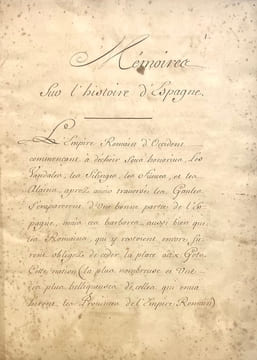 Mémoires
Sur l'histoire d'Espagne.
L'Empire Romain d'Occident
commençant à dechoir sous honorius, les
Vandales, les Silinges, les Sueves, et les
Alains, aprez avoir traversés les Gaules
s'emparerent d'Une bonne partie de l'Es
pagne, mais ces barbares, aussi bien que
les Romains, qui y restoient encore, fu
rent obligés de ceder la place aux Gots.
Cette nation (la plus nombreuse et Une
des plus belliqueuses de celles qui enva
hirent les Provinces de l'Empire Romain)